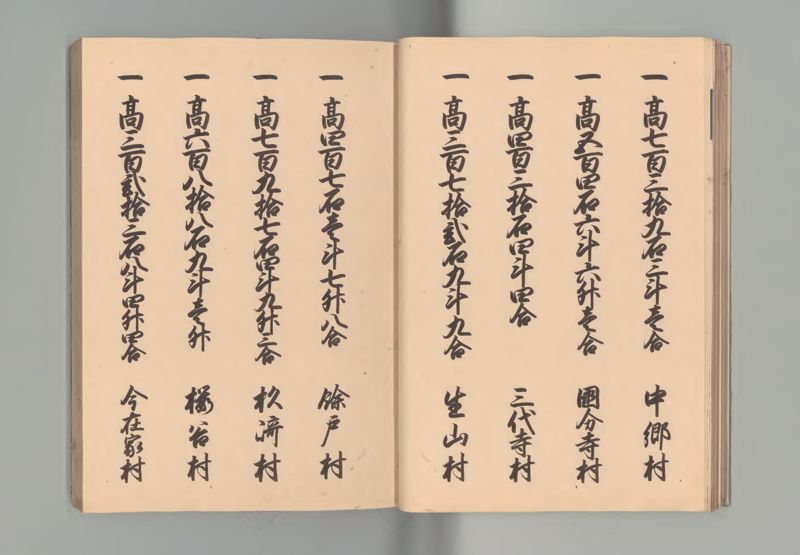 一 髙七百三拾九石三斗壱合 中郷村
一 髙五百四石六斗六升壱合 國分寺村
一 髙四百三拾石四斗四合 三代寺村
一 髙三百七拾弐石九斗九合 生山村
一 髙四百七石壱斗七升八合 餘戸村
一 髙七百九拾七石四斗九升三合 杉﨑村
一 髙六百八拾八石九斗壱升 櫻谷村
一 髙三百弐拾三石八斗四升四合 今在家村